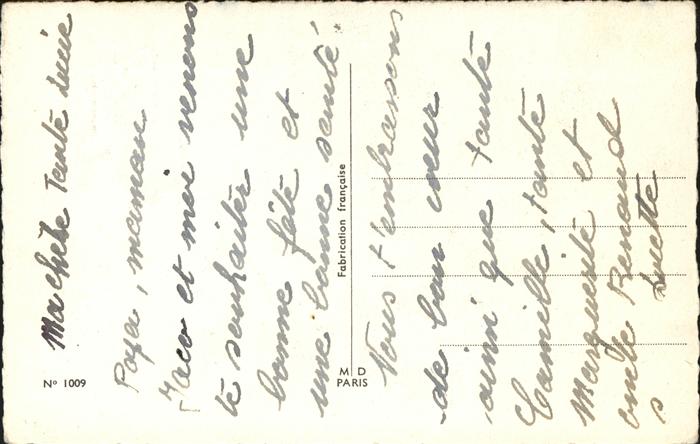 Ma chère Tante Lucie
Papa, maman
Jaco et moi venons
te souhaiter une
bonne fête et
une bonne santé
Nous t'embrassons
de bon coeur
ainsi que tante
Camille, tante
Marguerite et
oncle Renaud
Lucette
Fabrication française
M D
PARIS
Nº 1009